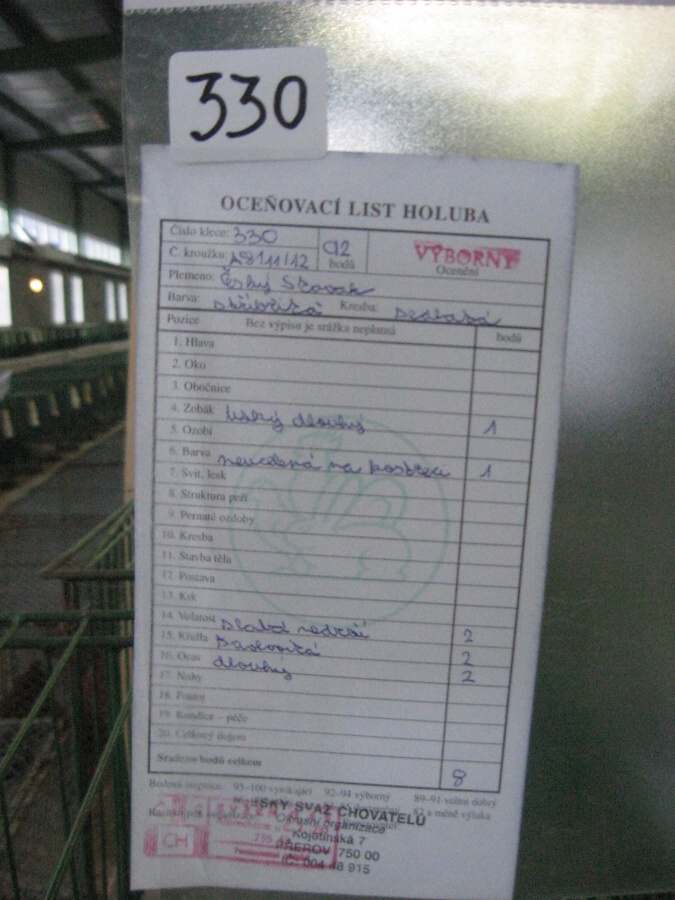 330
OCEŇOVACÍ LIST HOLUBA
Číslo klece: 330
92 bodů
VÝBORNÝ
Ocenění
Č. kroužku: A8111/12
Plemeno: Český Stavák
Barva: stříbřitá Kresba: sedlatá
Pozice Bez výpisu je srážka neplatná bodů
1. Hlava
2. Oko
3. Obočnice
4. Zobák užký dlouhý 1
5. Ozobí
6. Barva na kostřeci 1
7. Svit, lesk
8. Struktura peří
9. Pernaté ozdoby
10. Kresba
11. Stavba těla
12. Postava
13. Krk
14. Volatost slabě 2
15. Křídla 2
16. Ocas dlouhý 2
17. Nohy
18. Postoj
19. Kondice – péče
20. Celkový dojem
Srážkov bodů celkem 8
95–100 vynikající 92–94 výborný 89–91 velmi dobrý
82 a méně výluka
SKÝ SVAZ CHOVATELŮ
Okresní organizace
Kojetínská 7
PŘEROV 750 00
IČ: 004 48 915
CH